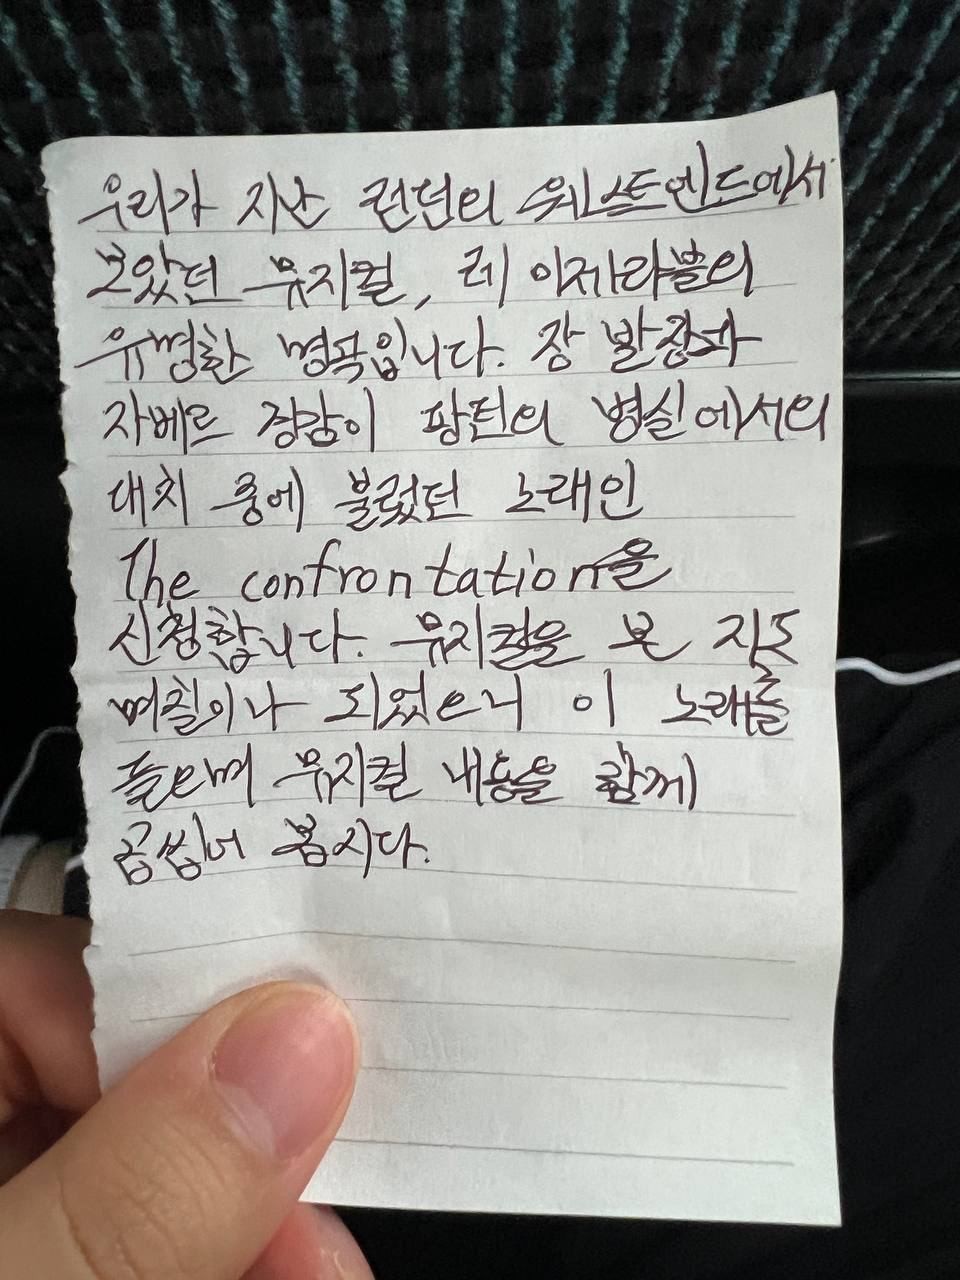 우리가 지난 런던의 웨스트엔드에서
보았던 뮤지컬, 레 미제라블의
유명한 명곡입니다. 장 발장과
자베르 경감이 팡틴의 병실에서의
대치 중에 불렀던 노래인
The confrontation을
신청합니다. 뮤지컬을 본 지도
며칠이나 되었으니 이 노래를
들으며 뮤지컬 내용을 함께
곱씹어 봅시다.